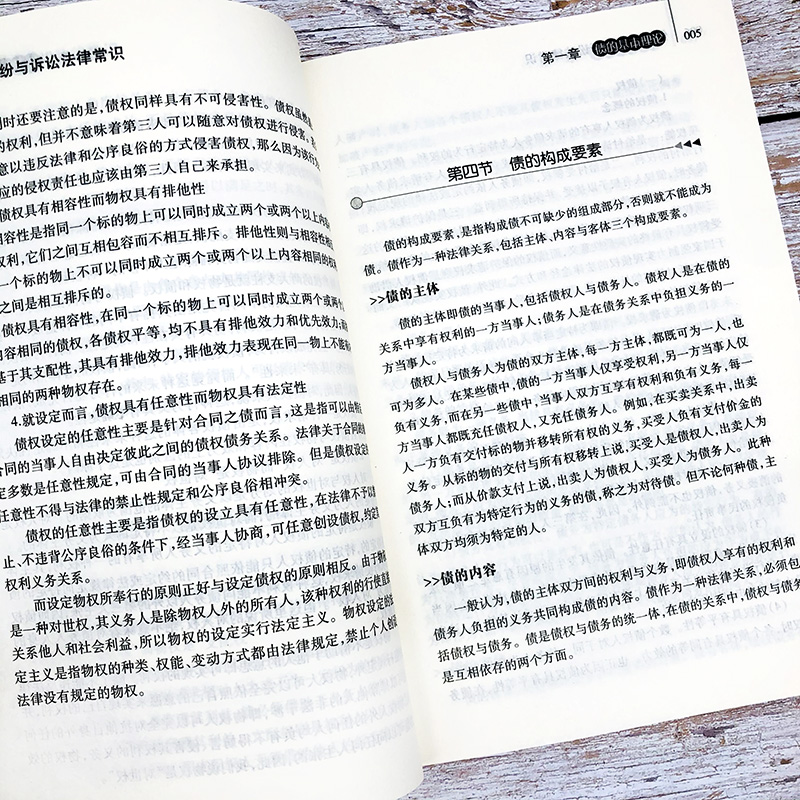 纷与诉讼法律常识
时还要注意的是,债权同样具有不可侵害性。债权虽然
的权利,但并不意味着第三人可以随意对债权进行侵害。
意以违反法律和公序良俗的方式侵害债权,那么因为该行
应的侵权责任也应该由第三人自己来承担。
债权具有相容性而物权具有排他性
相容性是指同一个标的物上可以同时成立两个或两个以上内
权利,它们之间互相包容而不相互排斥。排他性则与相容性相
一个标的物上不可以同时成立两个或两个以上内容相同的权
之间是相互排斥的。
债权具有相容性,在同一个标的物上可以同时成立两个或两个
内容相同的债权,各债权平等,均不具有排他效力和优先效力;
基于其支配性,其具有排他效力,排他效力表现在同一物上不能
相同的两种物权存在。
4.就设定而言,债权具有任意性而物权具有法定性
债权设定的任意性主要是针对合同之债而言,这是指可以由
合同的当事人自由决定彼此之间的债权债务关系。法律关于合同的
定多数是任意性规定,可由合同的当事人协议排除。但是债权设定
任意性不得与法律的禁止性规定和公序良俗相冲突。
债权的任意性主要是指债权的设立具有任意性,在法律不予以
止、不违背公序良俗的条件下,经当事人协商,可任意创设债权,约定
权利义务关系。
而设定物权所奉行的原则正好与设定债权的原则相反。由于物
是一种对世权,其义务人是除物权人外的所有人,该种权利的行使直
关系他人和社会利益,所以物权的设定实行法定主义。物权设定的
定主义是指物权的种类、权能、变动方式都由法律规定,禁止个人创
法律没有规定的物权。
第一章 债的基本理论 005
第四节 债的构成要素
债的构成要素,是指构成债不可缺少的组成部分,否则就不能成为
债。债作为一种法律关系,包括主体、内容与客体三个构成要素。
>>债的主体
债的主体即债的当事人,包括债权人与债务人。债权人是在债的
关系中享有权利的一方当事人;债务人是在债务关系中负担义务的一
方当事人。
债权人与债务人为债的双方主体,每一方主体,都既可为一人,也
可为多人。在某些债中,债的一方当事人仅享受权利,另一方当事人仅
负有义务,而在另一些债中,当事人双方互享有权利和负有义务,每一
方当事人都既充任债权人,又充任债务人。例如,在买卖关系中,出卖
人一方负有交付标的物并移转所有权的义务,买受人负有支付价金的
义务。从标的物的交付与所有权移转上说,买受人是债权人,出卖人为
债务人;而从价款支付上说,出卖人为债权人,买受人为债务人。此种
双方互负有为特定行为的义务的债,称之为对待债。但不论何种债,主
体双方均须为特定的人。
>>债的内容
一般认为,债的主体双方间的权利与义务,即债权人享有的权利和
债务人负担的义务共同构成债的内容。债作为一种法律关系,必须包
括债权与债务。债是债权与债务的统一体,在债的关系中,债权与债务
是互相依存的两个方面。